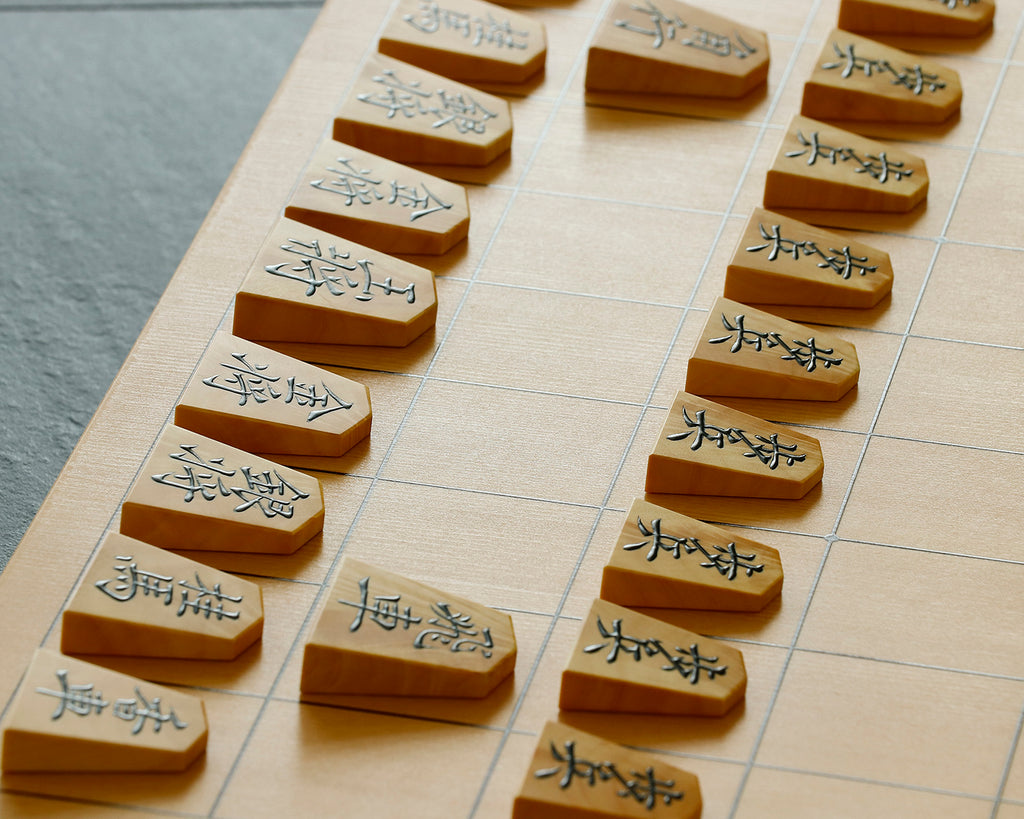 桂馬
銀将
金将
王将
金将
銀将
桂馬
香車
角行
飛車
歩兵
歩兵
歩兵
歩兵
歩兵
歩兵
歩兵
歩兵